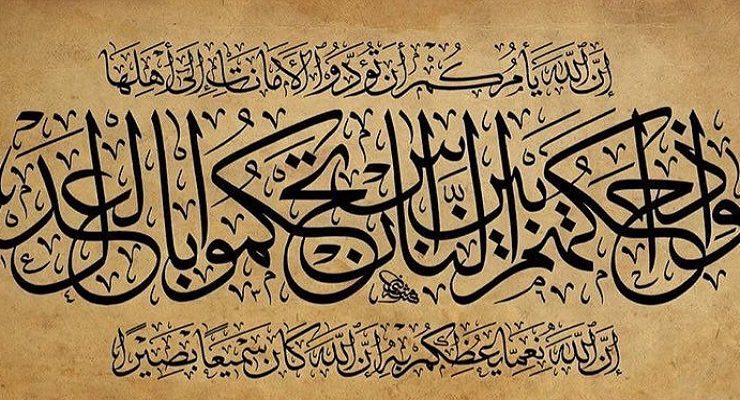 إِنَّ ٱللَّهَ يَأْمُرُكُمْ أَن تُؤَدُّوا۟ ٱلْأَمَانَاتِ إِلَىٰ أَهْلِهَا
وَإِذَا حَكَمْتُم بَيْنَ النَّاسِ أَن تَحْكُمُوا بِالْعَدْلِ
إِنَّ ٱللَّهَ نِعِمَّا يَعِظُكُم بِهِ إِنَّ ٱللَّهَ كَانَ سَمِيعًا بَصِيرًا